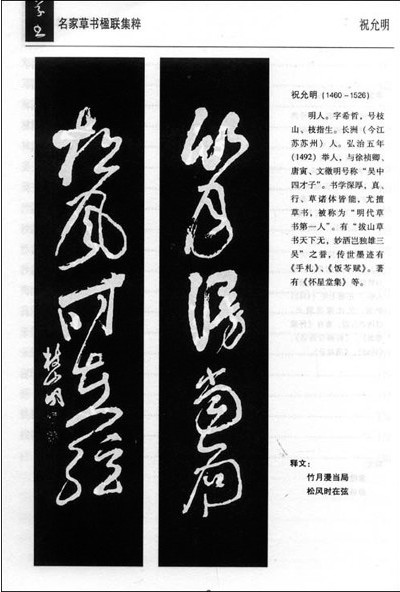 名家草书楹联集粹
祝允明
竹月漫当局
松风时在弦
枝山明
祝允明(1460－1526)
明人。字希哲，号枝
山、枝指生。长洲（今江
苏苏州）人。弘治五年
(1492)举人，与徐祯卿、
唐寅、文徵明号称“吴中
四才子”。书学深厚，真、
行、草诸体皆能，尤擅
草书，被称为“明代草
书第一人”。有“拔山草
书天下无，妙洒岂独雄三
吴”之誉，传世墨迹有
《手札》、《饭苓赋》。著
有《怀星堂集》等。
释文：
竹月漫当局
松风时在弦